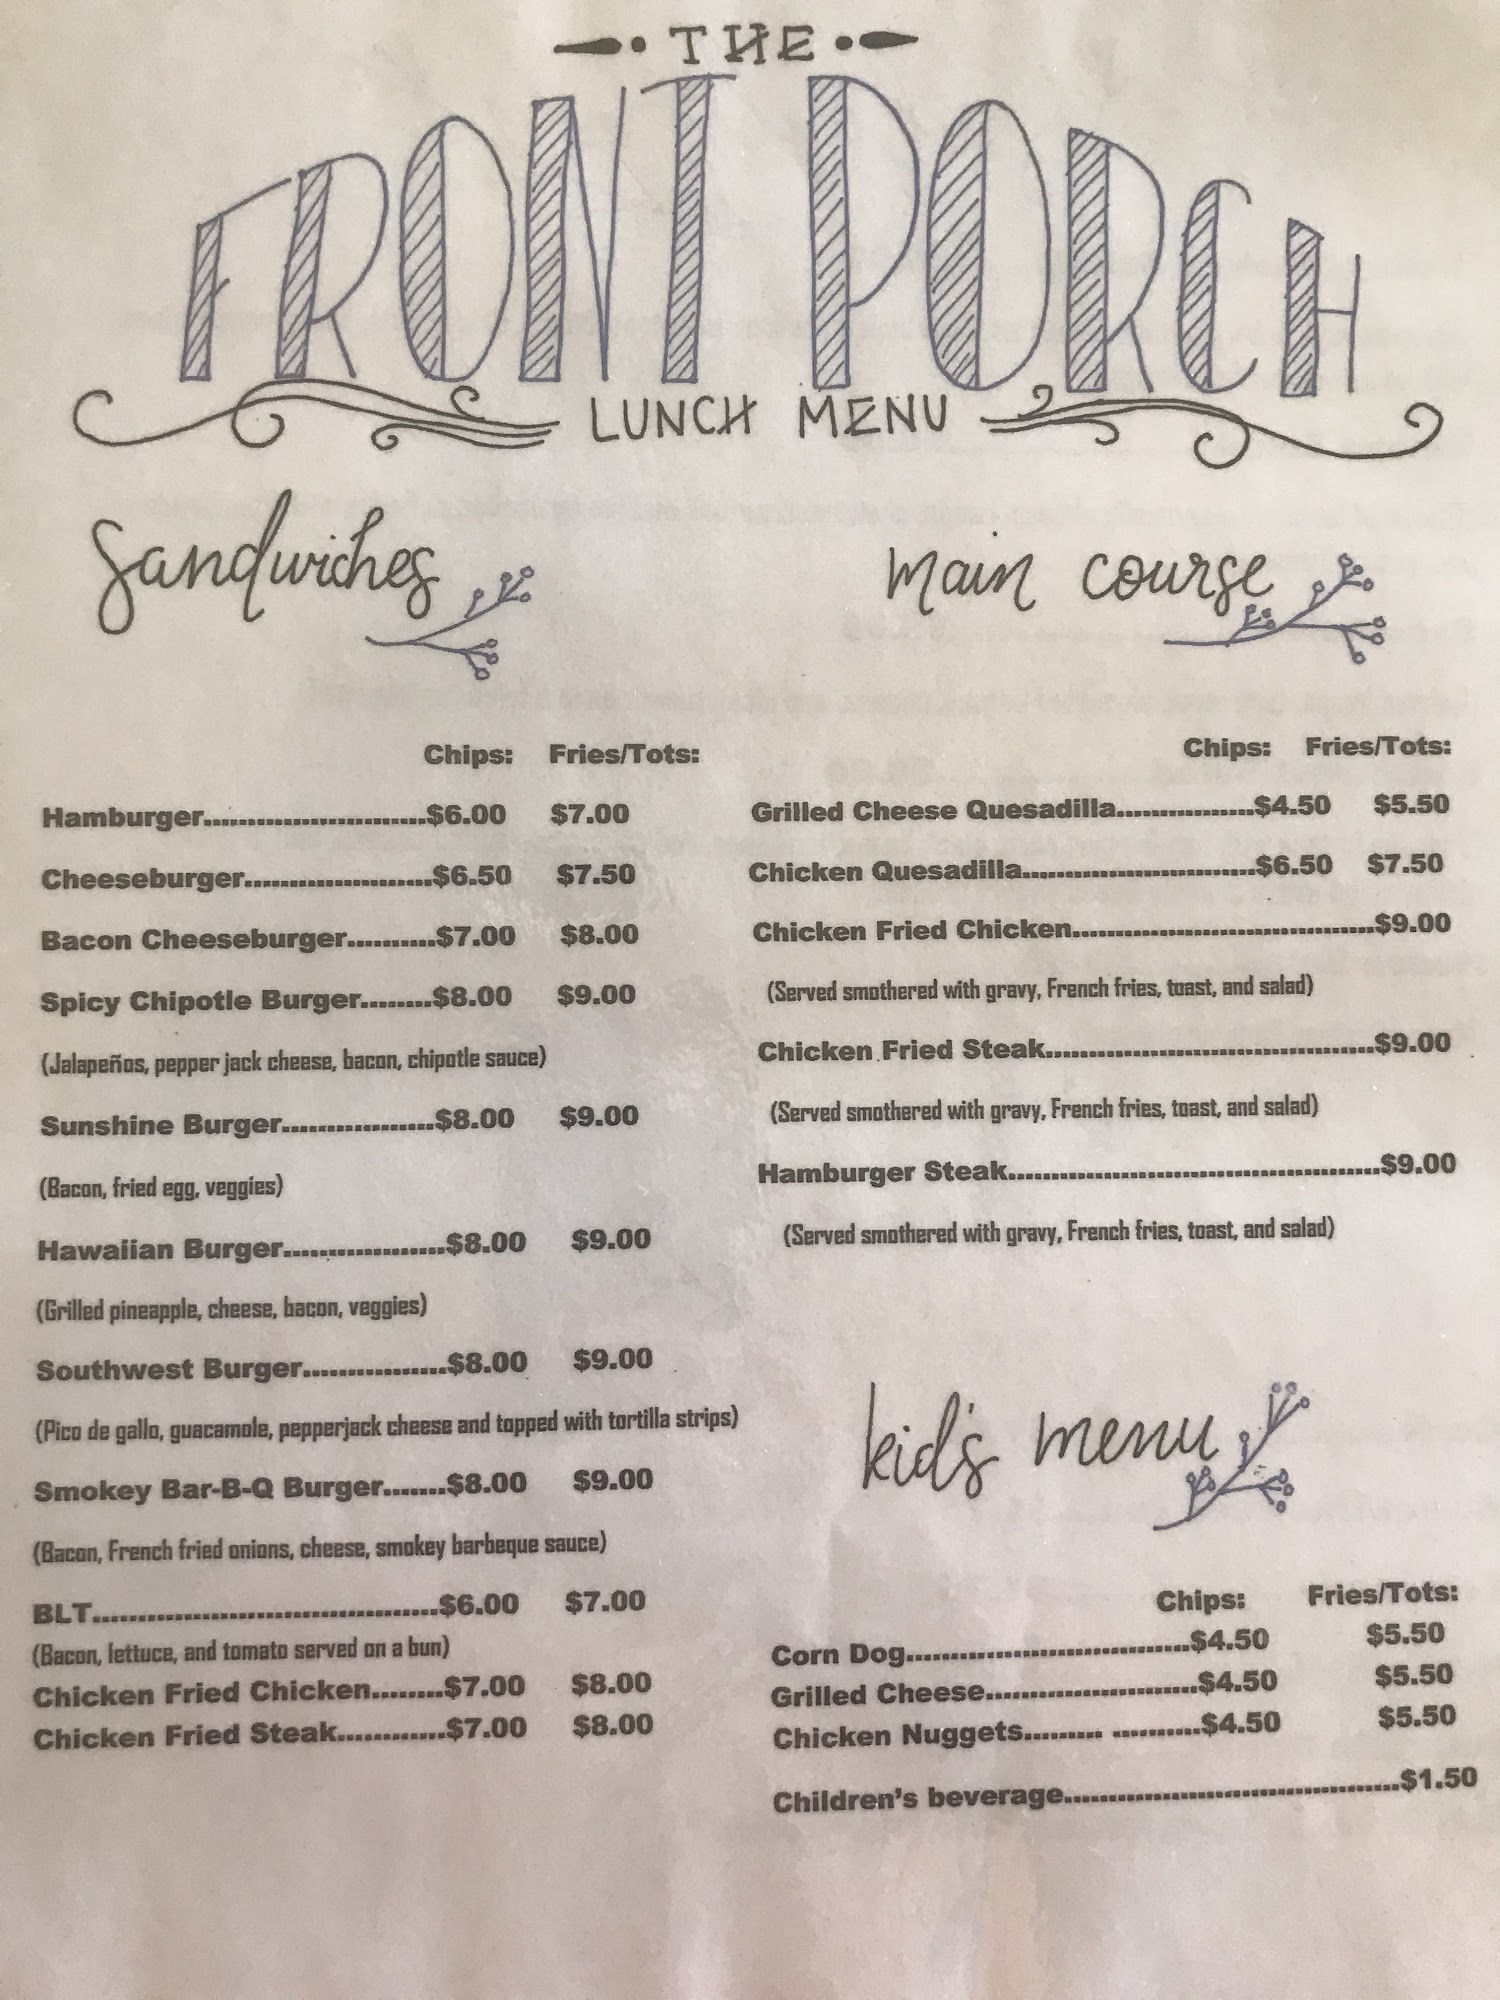 THE
FRONT PORCH
LUNCH MENU
Sandwiches
Chips: Fries/Tots:
Hamburger.........................$6.00 $7.00
Cheeseburger.....................$6.50 $7.50
Bacon Cheeseburger..........$7.00 $8.00
Spicy Chipotle Burger........$8.00 $9.00
(Jalapeños, pepper jack cheese, bacon, chipotle sauce)
Sunshine Burger.................$8.00 $9.00
(Bacon, fried egg, veggies)
Hawaiian Burger..................$8.00 $9.00
(Grilled pineapple, cheese, bacon, veggies)
Southwest Burger................$8.00 $9.00
(Pico de gallo, guacamole, pepperjack cheese and topped with tortilla strips)
Smokey Bar-B-Q Burger.......$8.00 $9.00
(Bacon, French fried onions, cheese, smokey barbeque sauce)
BLT......................................$6.00 $7.00
(Bacon, lettuce, and tomato served on a bun)
Chicken Fried Chicken........$7.00 $8.00
Chicken Fried Steak............$7.00 $8.00
main course
Chips: Fries/Tots:
Grilled Cheese Quesadilla...............$4.50 $5.50
Chicken Quesadilla..........................$6.50 $7.50
Chicken Fried Chicken.................................$9.00
(Served smothered with gravy, French fries, toast, and salad)
Chicken Fried Steak....................................$9.00
(Served smothered with gravy, French fries, toast, and salad)
Hamburger Steak.........................................$9.00
(Served smothered with gravy, French fries, toast, and salad)
kid's menu
Chips: Fries/Tots:
Corn Dog...............................$4.50 $5.50
Grilled Cheese.......................$4.50 $5.50
Chicken Nuggets......... ..........$4.50 $5.50
Children's beverage.....................................$1.50